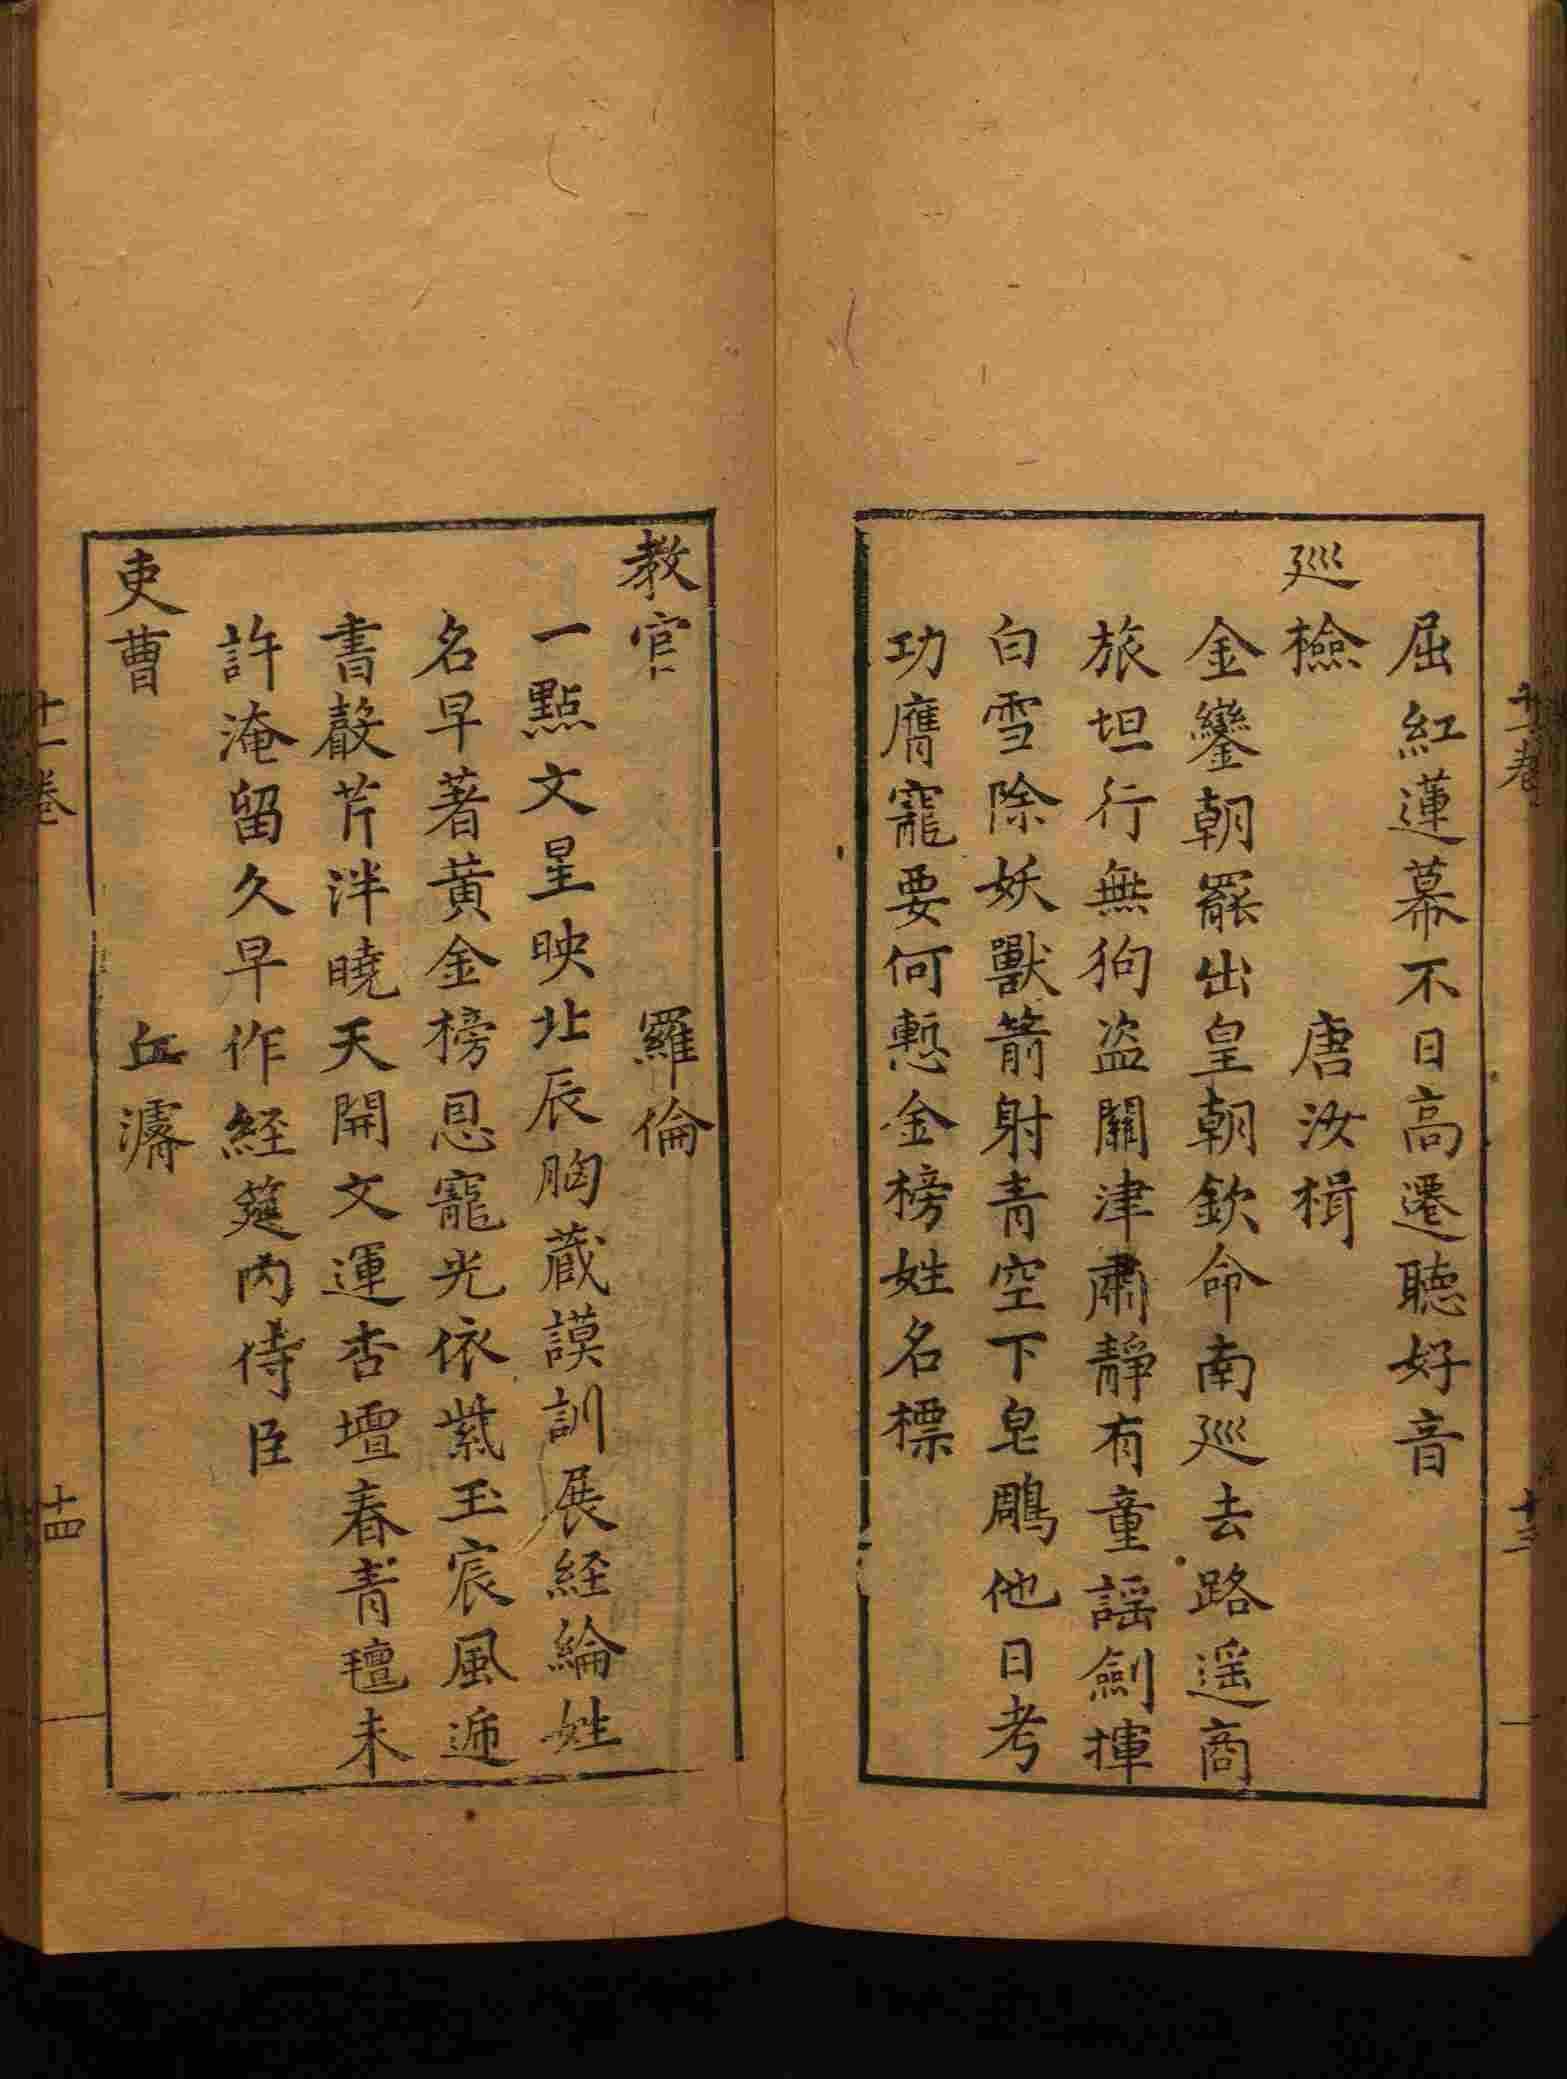 屈紅蓮幕不日高遷聽好音
巡檢　唐汝楫
金鑾朝罷出皇朝欽命南巡去路遥商
旅坦行無狗盗關津肅靜有童謡劍揮
白雪除妖獸箭射青空下皂鵰他日考
功膺寵要何慙金榜姓名標
十三
教官　羅倫
一點文星映北辰胸蔵謨訓展経綸姓
名早著黄金榜恩寵光依紫玉宸風逓
書聲芹泮曉天開文運杏壇春青氊未
許淹留久早作経筵内侍臣
吏曹　丘濬
十一卷
十四